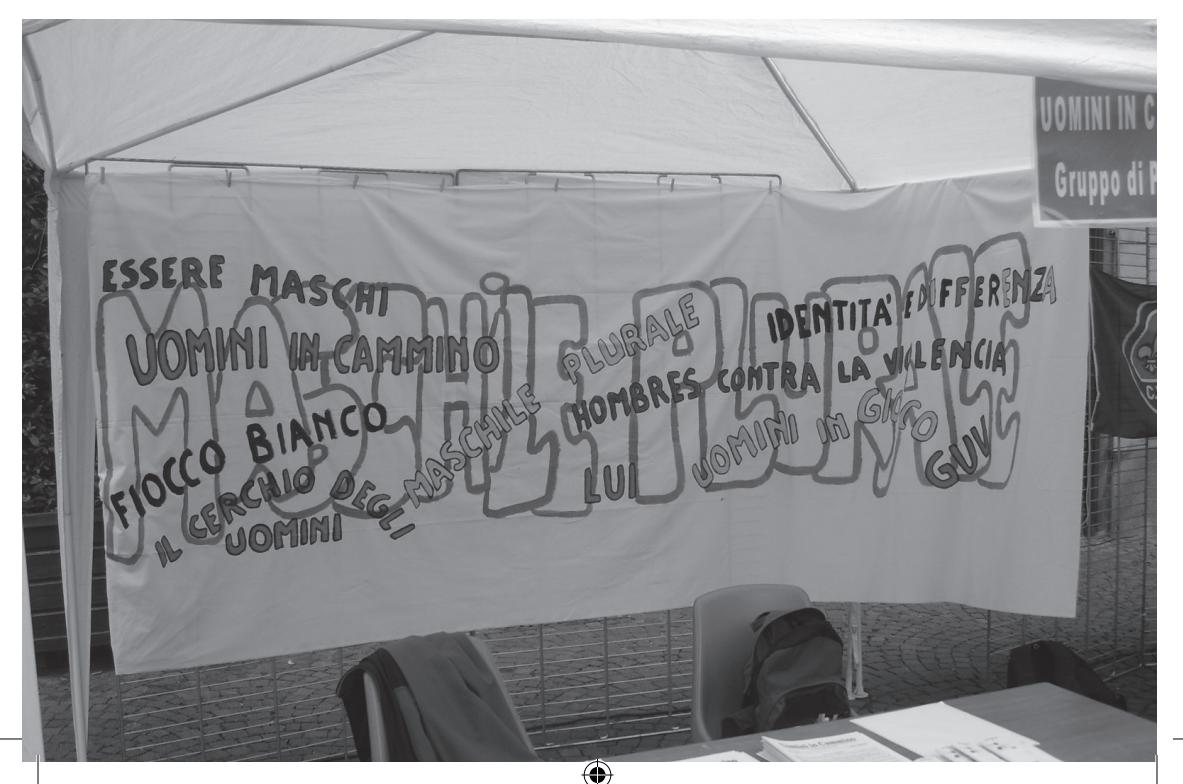 UOMINI IN C
Gruppo di P
MASCHILE PLURALE
ESSERE MASCHI
UOMINI IN CAMMINO
FIOCCO BIANCO
IL CERCHIO DEGLI
UOMINI
MASCHILE PLURALE
IDENTITA' E DIFFERENZA
HOMBRES CONTRA LA VIOLENCIA
UOMINI IN GIOCO
LUI
GUV
Uomini in Cammino